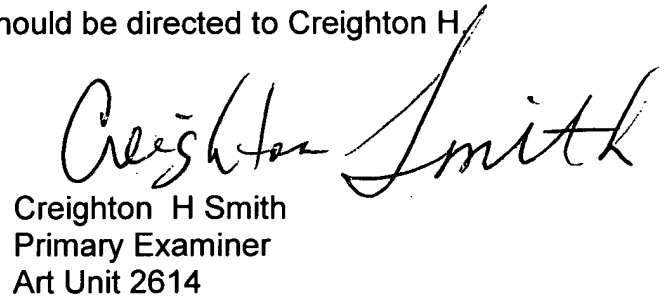 hould be directed to Creighton H.
Creighton Smith
Creighton H Smith
Primary Examiner
Art Unit 2614